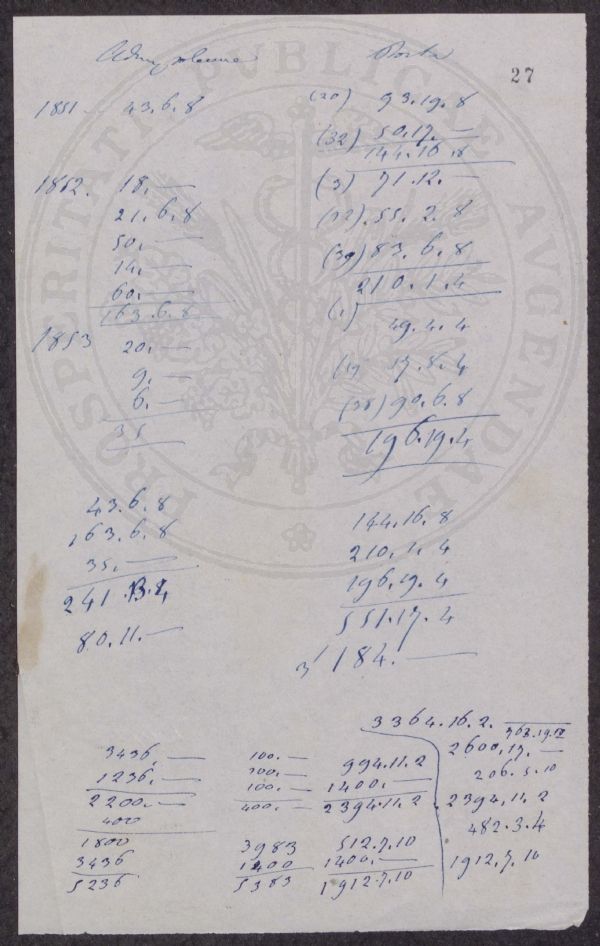 27
1851 43.6.8
(20) 93.19.8
(32) 50.17.—
144.16.8
1852. 18.—
21.6.8
50.—
14.—
60.—
163.6.8
(3) 71.12.—
(22) 55.2.8
(39) 83.6.8
210.1.4
1853 20.—
9.—
6.—
35
(1)
49.4.4
17.8.4
(38) 90.6.8
196.19.4
43.6.8
163.6.8
35.—
241.13.4
80.11.—
144.16.8
210.1.4
196.19.4
551.17.4
184.—
3364.16.2.
3436.—
1236.—
2200.—
400
1800
3436
5236
100.—
200.—
100.—
400.—
3983
1400
5383
994.11.2
1400.—
2394.11.2
512.7.10
1400.—
1912.7.10
2600.17.—
206.5.10
2394.11.2
482.3.4
1912.7.10
PROSPERITATI PVBLICAE AVGENDAE